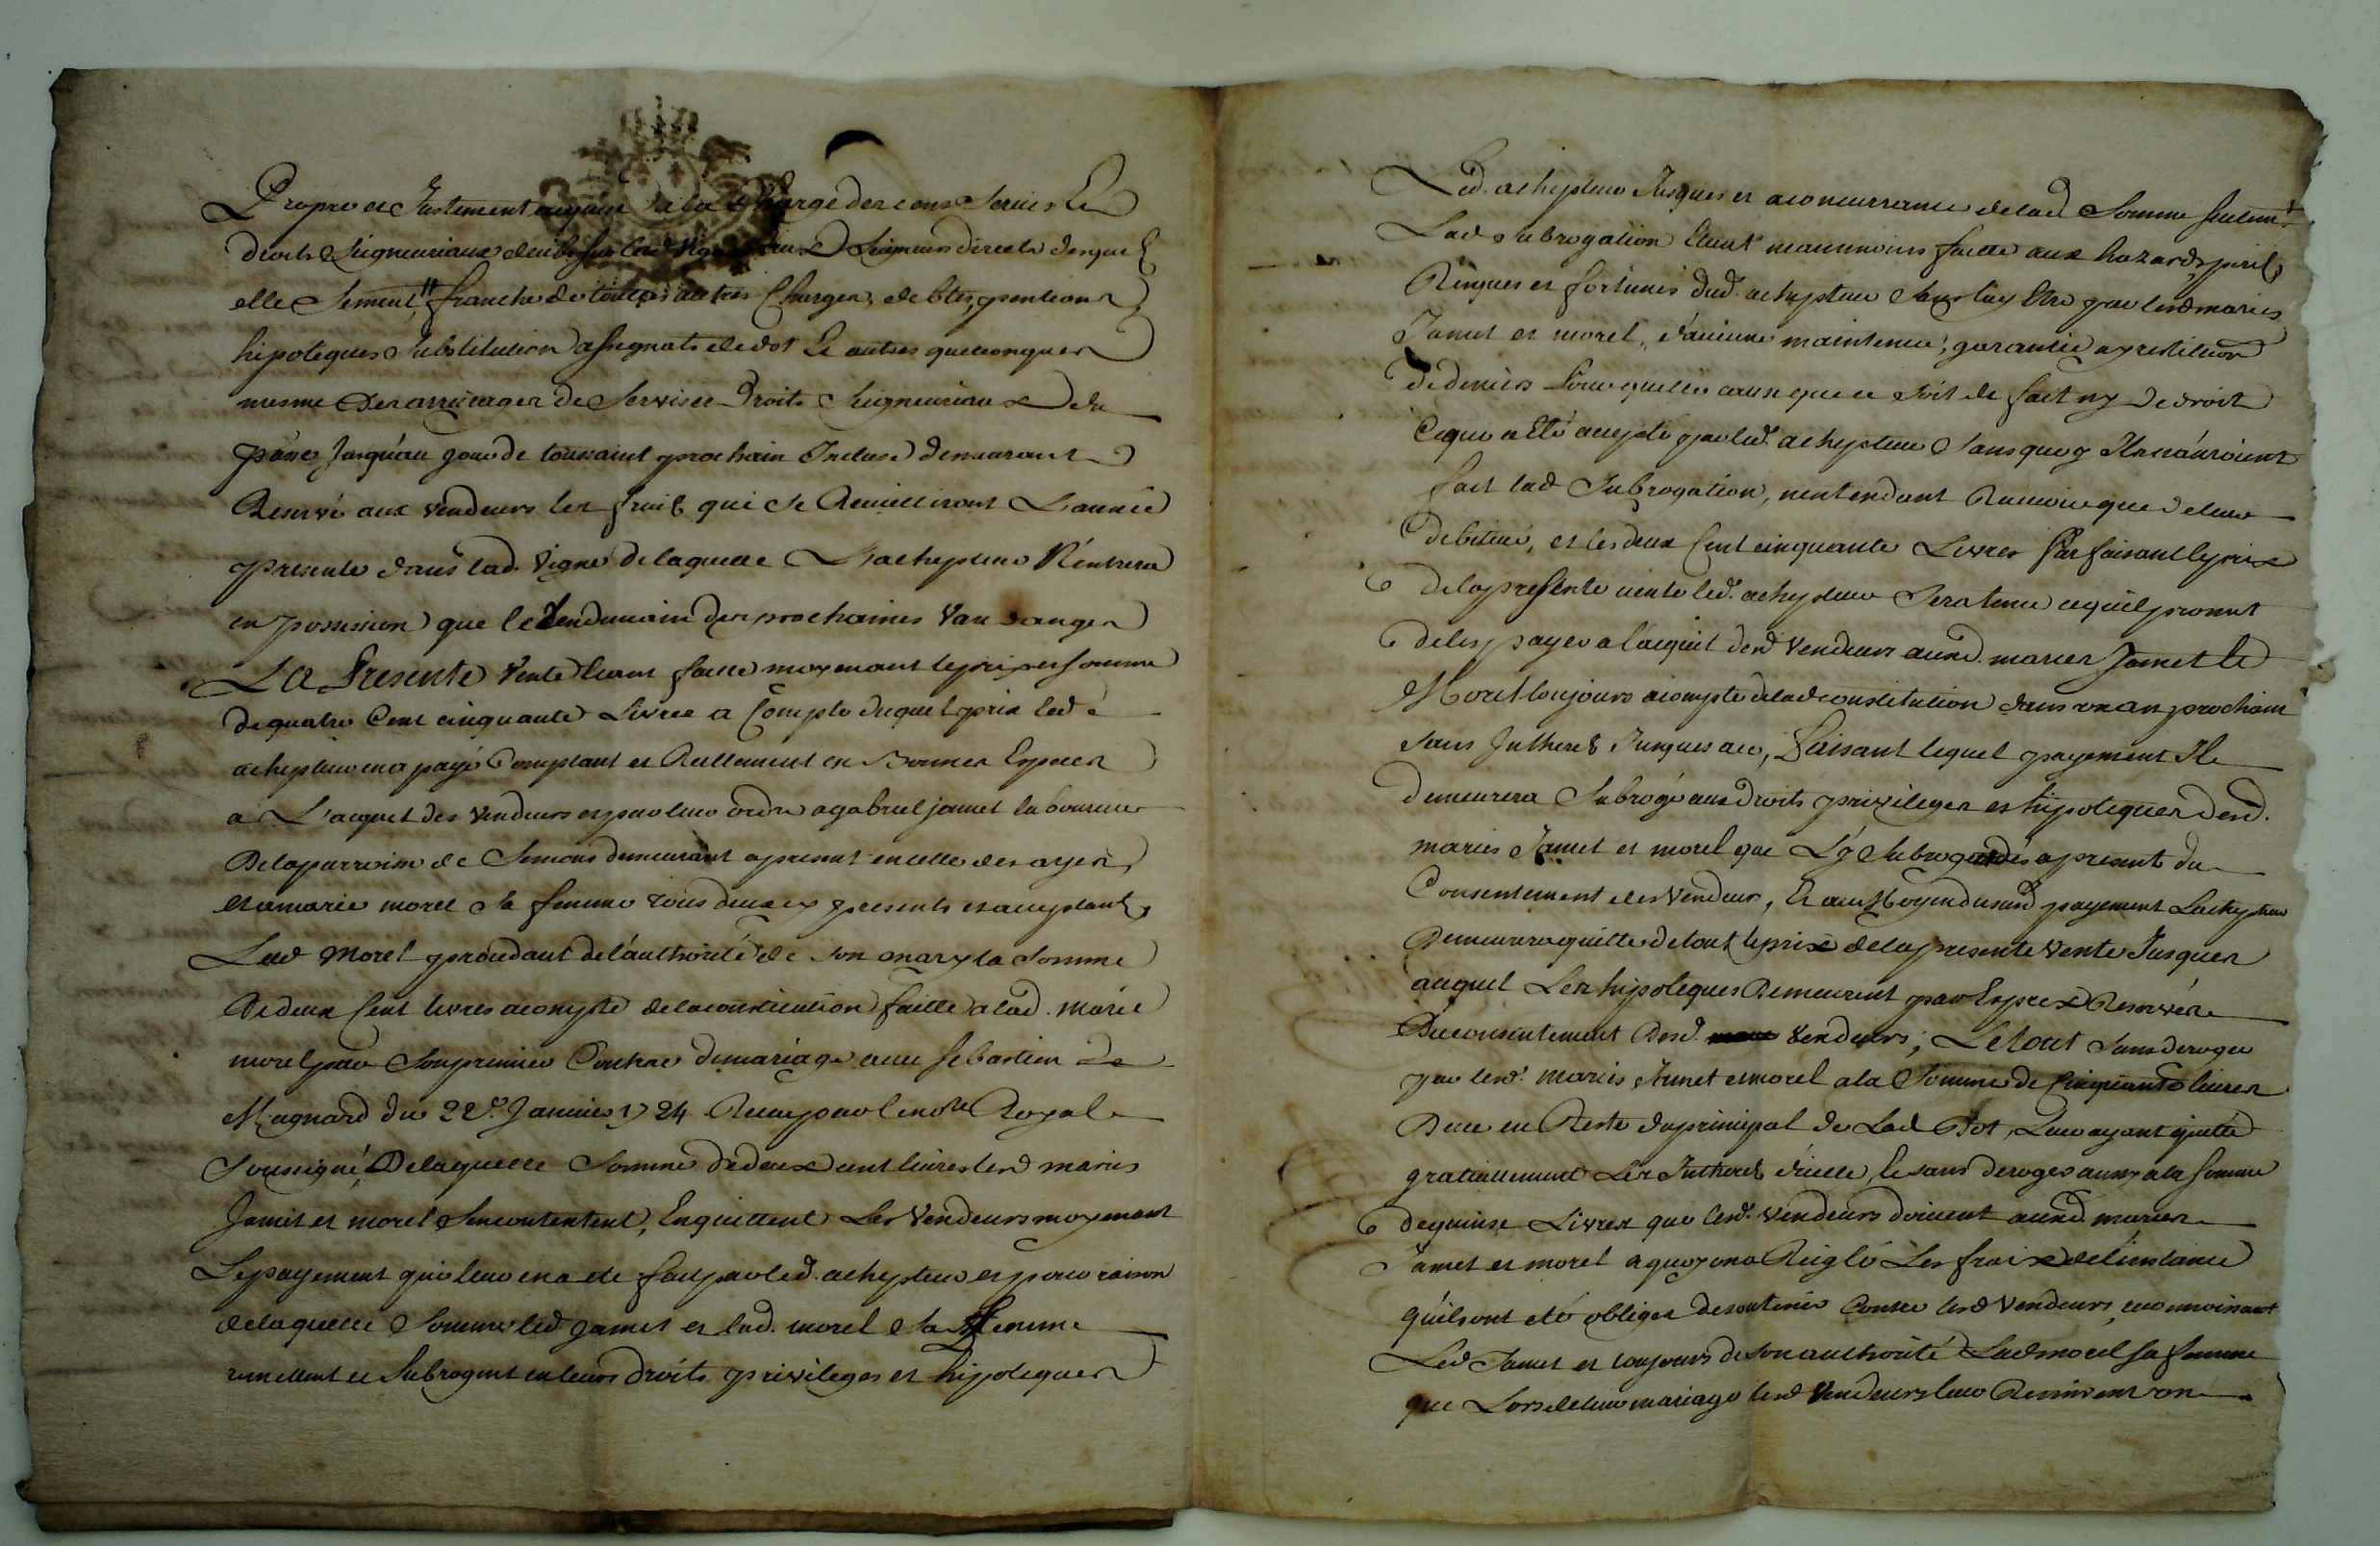 Propre et Justement acquise a la Charge des cens Servis Et
droits Seigneuriaux deubs sur lad Vigne aux Seigneurs directs desquels
elle Sement, franche de touttes autres Charges, debtes, pentions
hipoteques Substitution assignats de dot Et autres quelconques
mesme des arrerages de Servis et Droits Seigneuriaux du
passé Jusqu'au jour de toussaint prochain Incluse demeurant
Reservé aux vendeurs les fruits qui Se Reuilliront L'année
presente dans lad. Vigne de laquelle L'achepteur N'entrera
en possession que le lendemain des prochaines Vandanges
La Presente Vente Etant faitte moyenant le prix et somme
de quatre Cent cinquante Livres a Compte duquel prix led
achepteur en a payé Comptant et Reellement en Bonnes Especes
a L'acquit des Vendeurs et par leur ordre a gabriel jamet laboureur
De la parroisse de Simons demeurant a present en celle des ayes
et a marie morel Sa femme tous deux cy presents et acceptants
Lad Morel procedant de l'authorité de son mary la Somme
De deux Cent livres a compte de la constitution faitte a lad. marie
morel par Son premier Contrat de mariage avec Sebastien de
Magnard du 22e Janvier 1724 Receu par le nore Royal
Soussigné, De laquelle Somme de deux cent livres lesd mariés
Jamet et morel Se contentent, En quittent Les Vendeurs moyenant
Le payement qui leur en a ete fait par led. achepteur et pour raison
de laquelle Somme led Jamet et lad. morel Sa Femme
remettent et Subrogent en leurs droits privileges et hipoteques
Led. achepteur Jusques et a concurrance de lad Somme seulemt
Lad Subrogation Etant neanmoins faitte aux hazards, perils
Risques et fortunes dud. achepteur Sans luy Etre par lesd mariés
Jamet et morel, d'aucune maintenue, garantie ny restitution
de deniers Pour quelle cause que ce Soit de fait ny de droit
Ce qui a Eté accepté par led. achepteur Sans quoy Ils n'auroient
fait lad Subrogation, n'entendant Recevoir que de leur
debiteur, et les deux Cent cinquante Livres Parfaisant le prix
de la presente vente led. achepteur Sera tenu ce qu'il promet
de les payer a l'acquit desd Vendeurs auxd. mariés Jamet Et
Morel toujours a compte de lad constitution dans un an prochain
sans Interets Jusques a ce, Faisant lequel payement Il
demeurera Subrogé aux droits privileges et hipoteques desd.
mariés Jamet et morel qui L'y Subrogent dés a present du
Consentement des Vendeurs, Et au Moyen dusd payement L'achepteur
Demeurera quitte de tout le prix de la presente Vente Jusques
auquel Les hipoteques Demeurent par Exprex Reservées
Du consentement Desd. Vendeurs; Le tout Sans deroger
par lesd. mariés Jamet et morel a la Somme de Cinquante livres
Deue en Reste du principal de Lad Dot, Leur ayant quitté
gratuittement Les Interets d'icelle, Et sans deroger aussy a la somme
de quinze Livres que lesd. Vendeurs doivent auxd. mariés
Jamet et morel a quoy on a Reiglé Les fraix de l'instance
qu'ils ont eté obligés de soutenir Contre lesd Vendeurs, reconnoissant
Led Jamet et toujours de son authorité Lad morel sa femme
que Lors de leur mariage lesd Vendeurs leur Remirent un